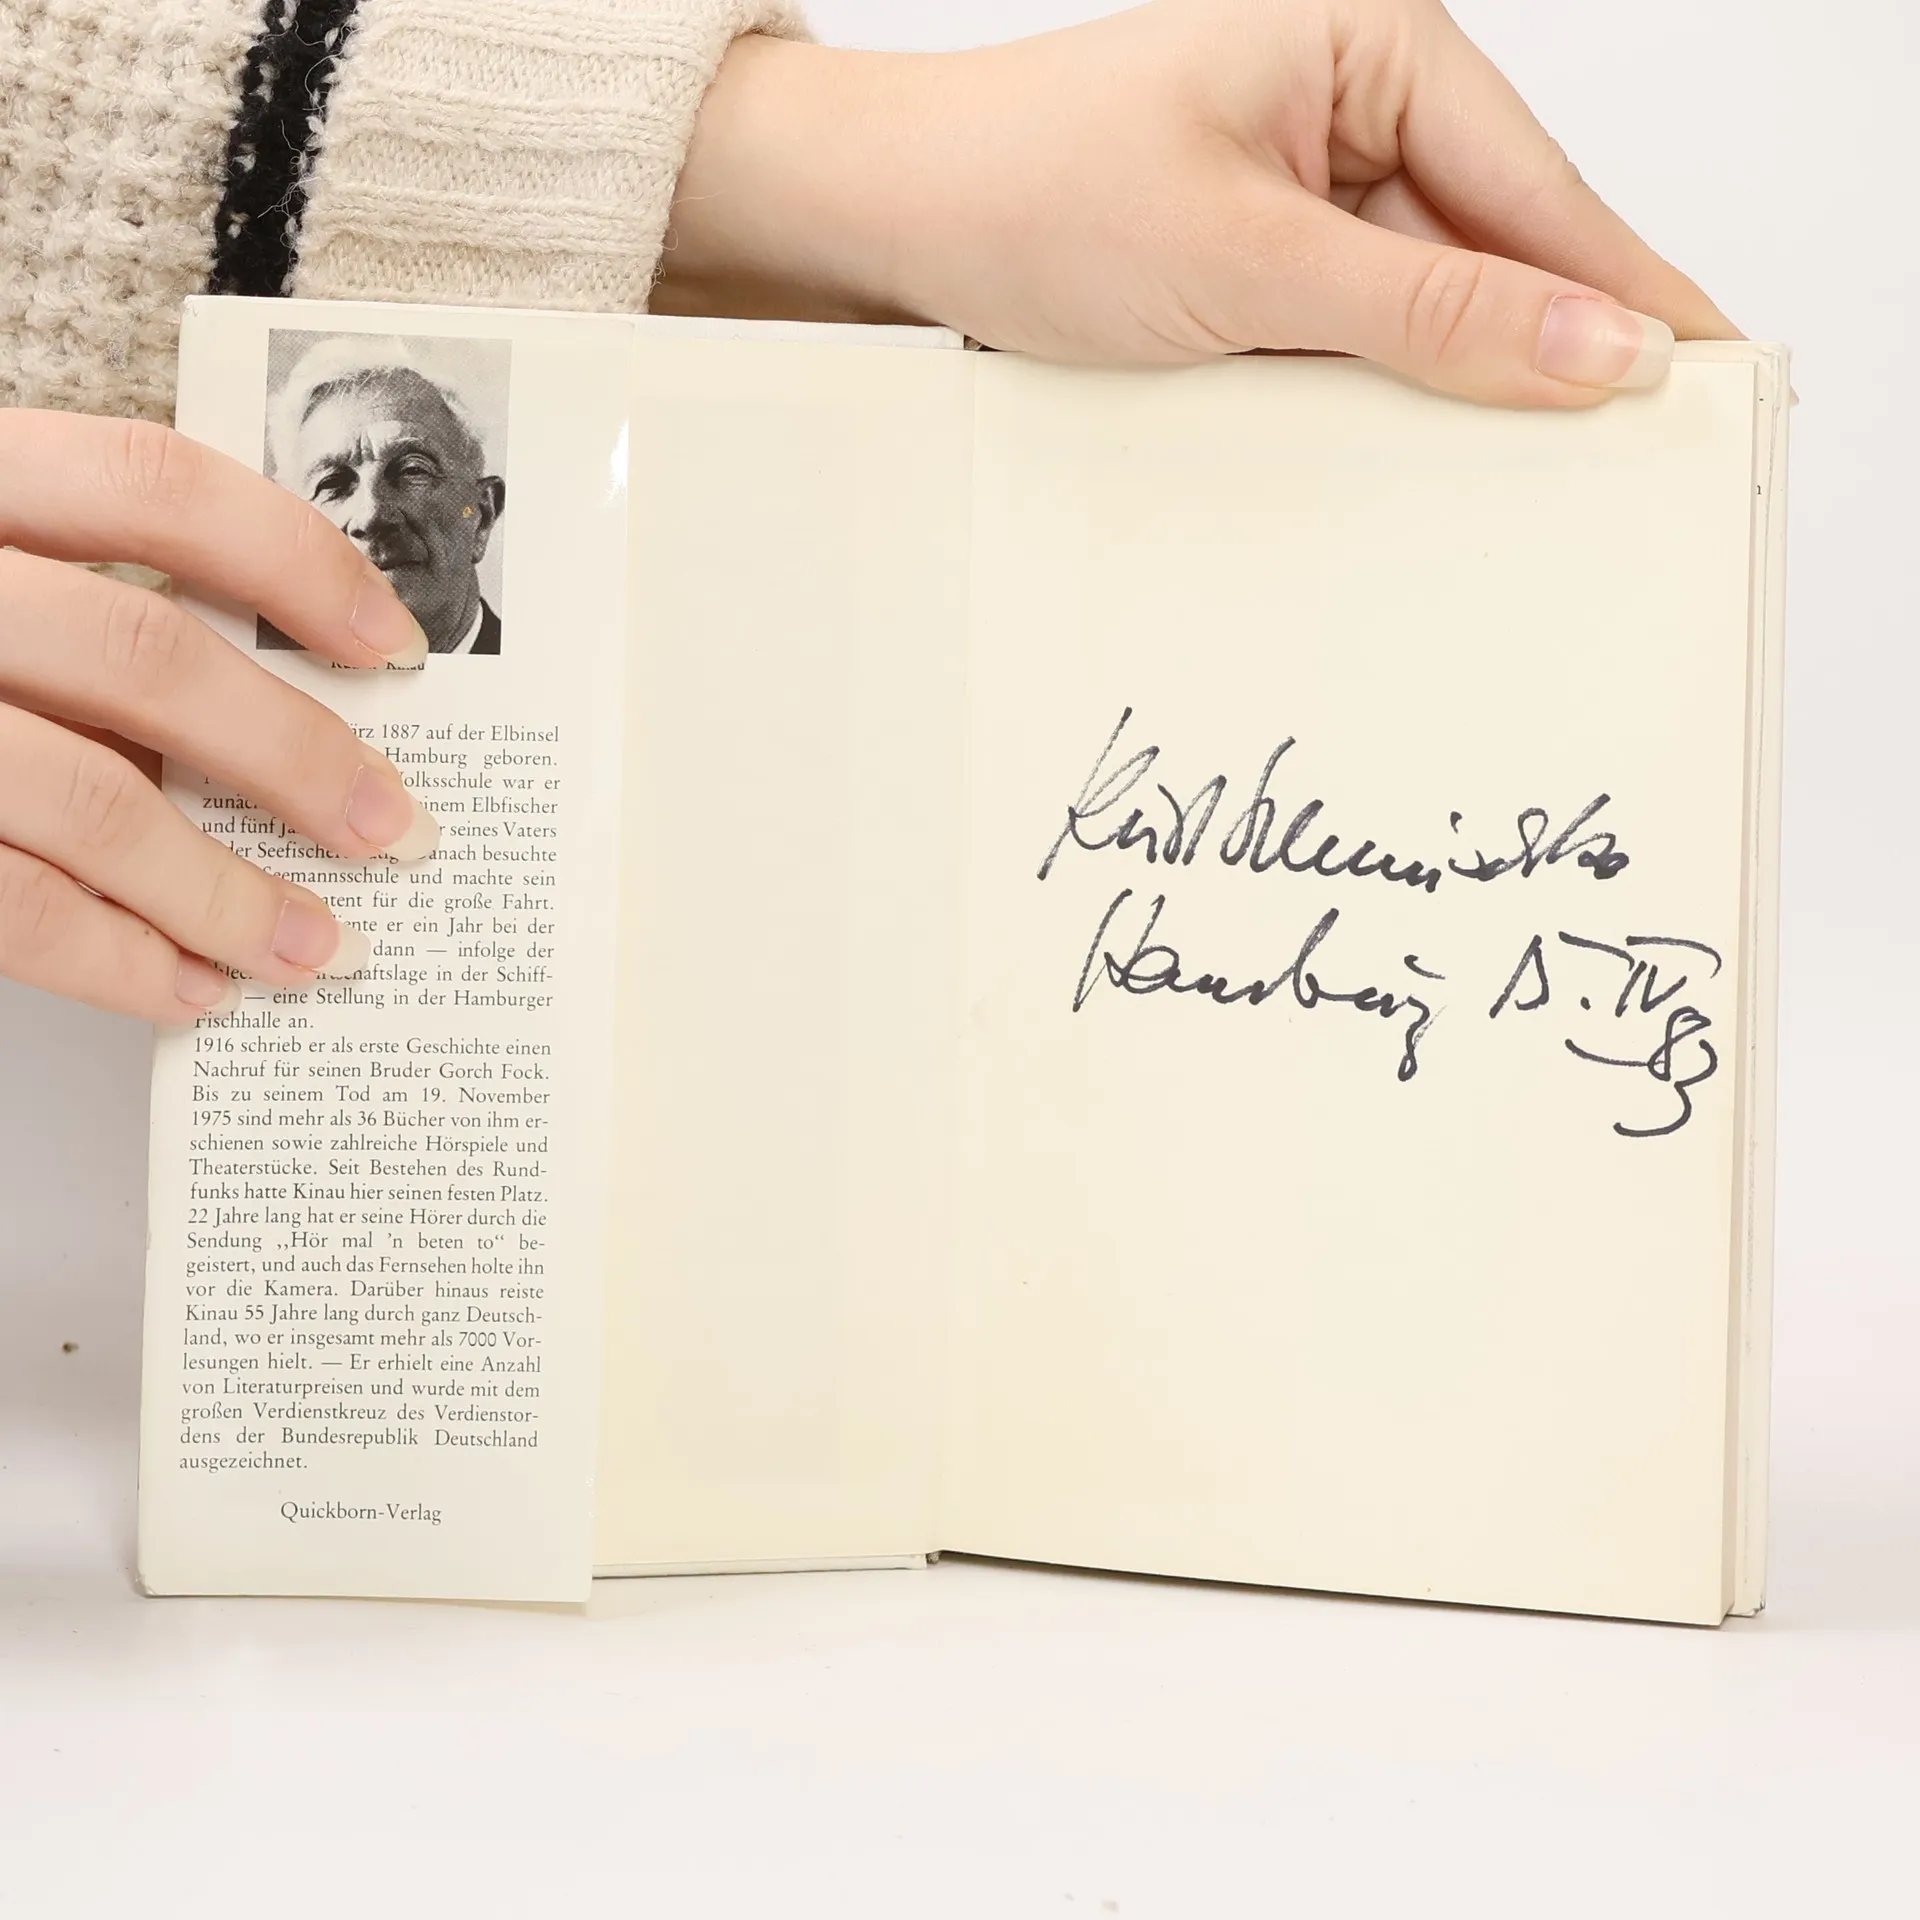 Kinau
ärz 1887 auf der Elbinsel
Hamburg geboren.
Volksschule war er
einem Elbfischer
und fünf seines Vaters
der Seefischerei Danach besuchte
Seemannsschule und machte sein
für die große Fahrt.
er ein Jahr bei der
dann — infolge der
in der Schiff-
— eine Stellung in der Hamburger
Fischhalle an.
1916 schrieb er als erste Geschichte einen
Nachruf für seinen Bruder Gorch Fock.
Bis zu seinem Tod am 19. November
1975 sind mehr als 36 Bücher von ihm er-
schienen sowie zahlreiche Hörspiele und
Theaterstücke. Seit Bestehen des Rund-
funks hatte Kinau hier seinen festen Platz.
22 Jahre lang hat er seine Hörer durch die
Sendung ,,Hör mal 'n beten to“ be-
geistert, und auch das Fernsehen holte ihn
vor die Kamera. Darüber hinaus reiste
Kinau 55 Jahre lang durch ganz Deutsch-
land, wo er insgesamt mehr als 7000 Vor-
lesungen hielt. — Er erhielt eine Anzahl
von Literaturpreisen und wurde mit dem
großen Verdienstkreuz des Verdienstor-
dens der Bundesrepublik Deutschland
ausgezeichnet.
Quickborn-Verlag
Hamburg IV 83